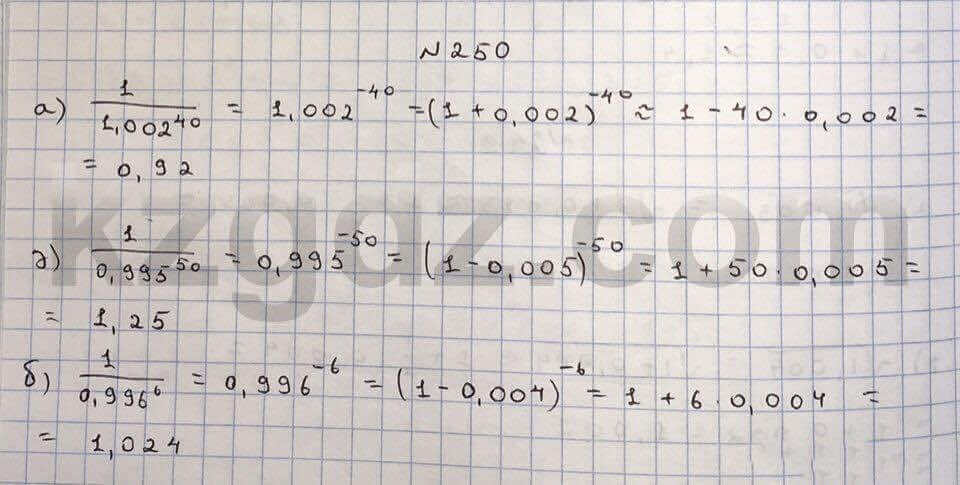 N 250
а) 1/1,002^40 = 1,002^-40 = (1 + 0,002)^-40 ≈ 1 - 40 · 0,002 =
= 0,92
д) 1/0,995^50 = 0,995^-50 = (1 - 0,005)^-50 = 1 + 50 · 0,005 =
= 1,25
б) 1/0,996^6 = 0,996^-6 = (1 - 0,004)^-6 = 1 + 6 · 0,004 =
= 1,024
kzgdz.com